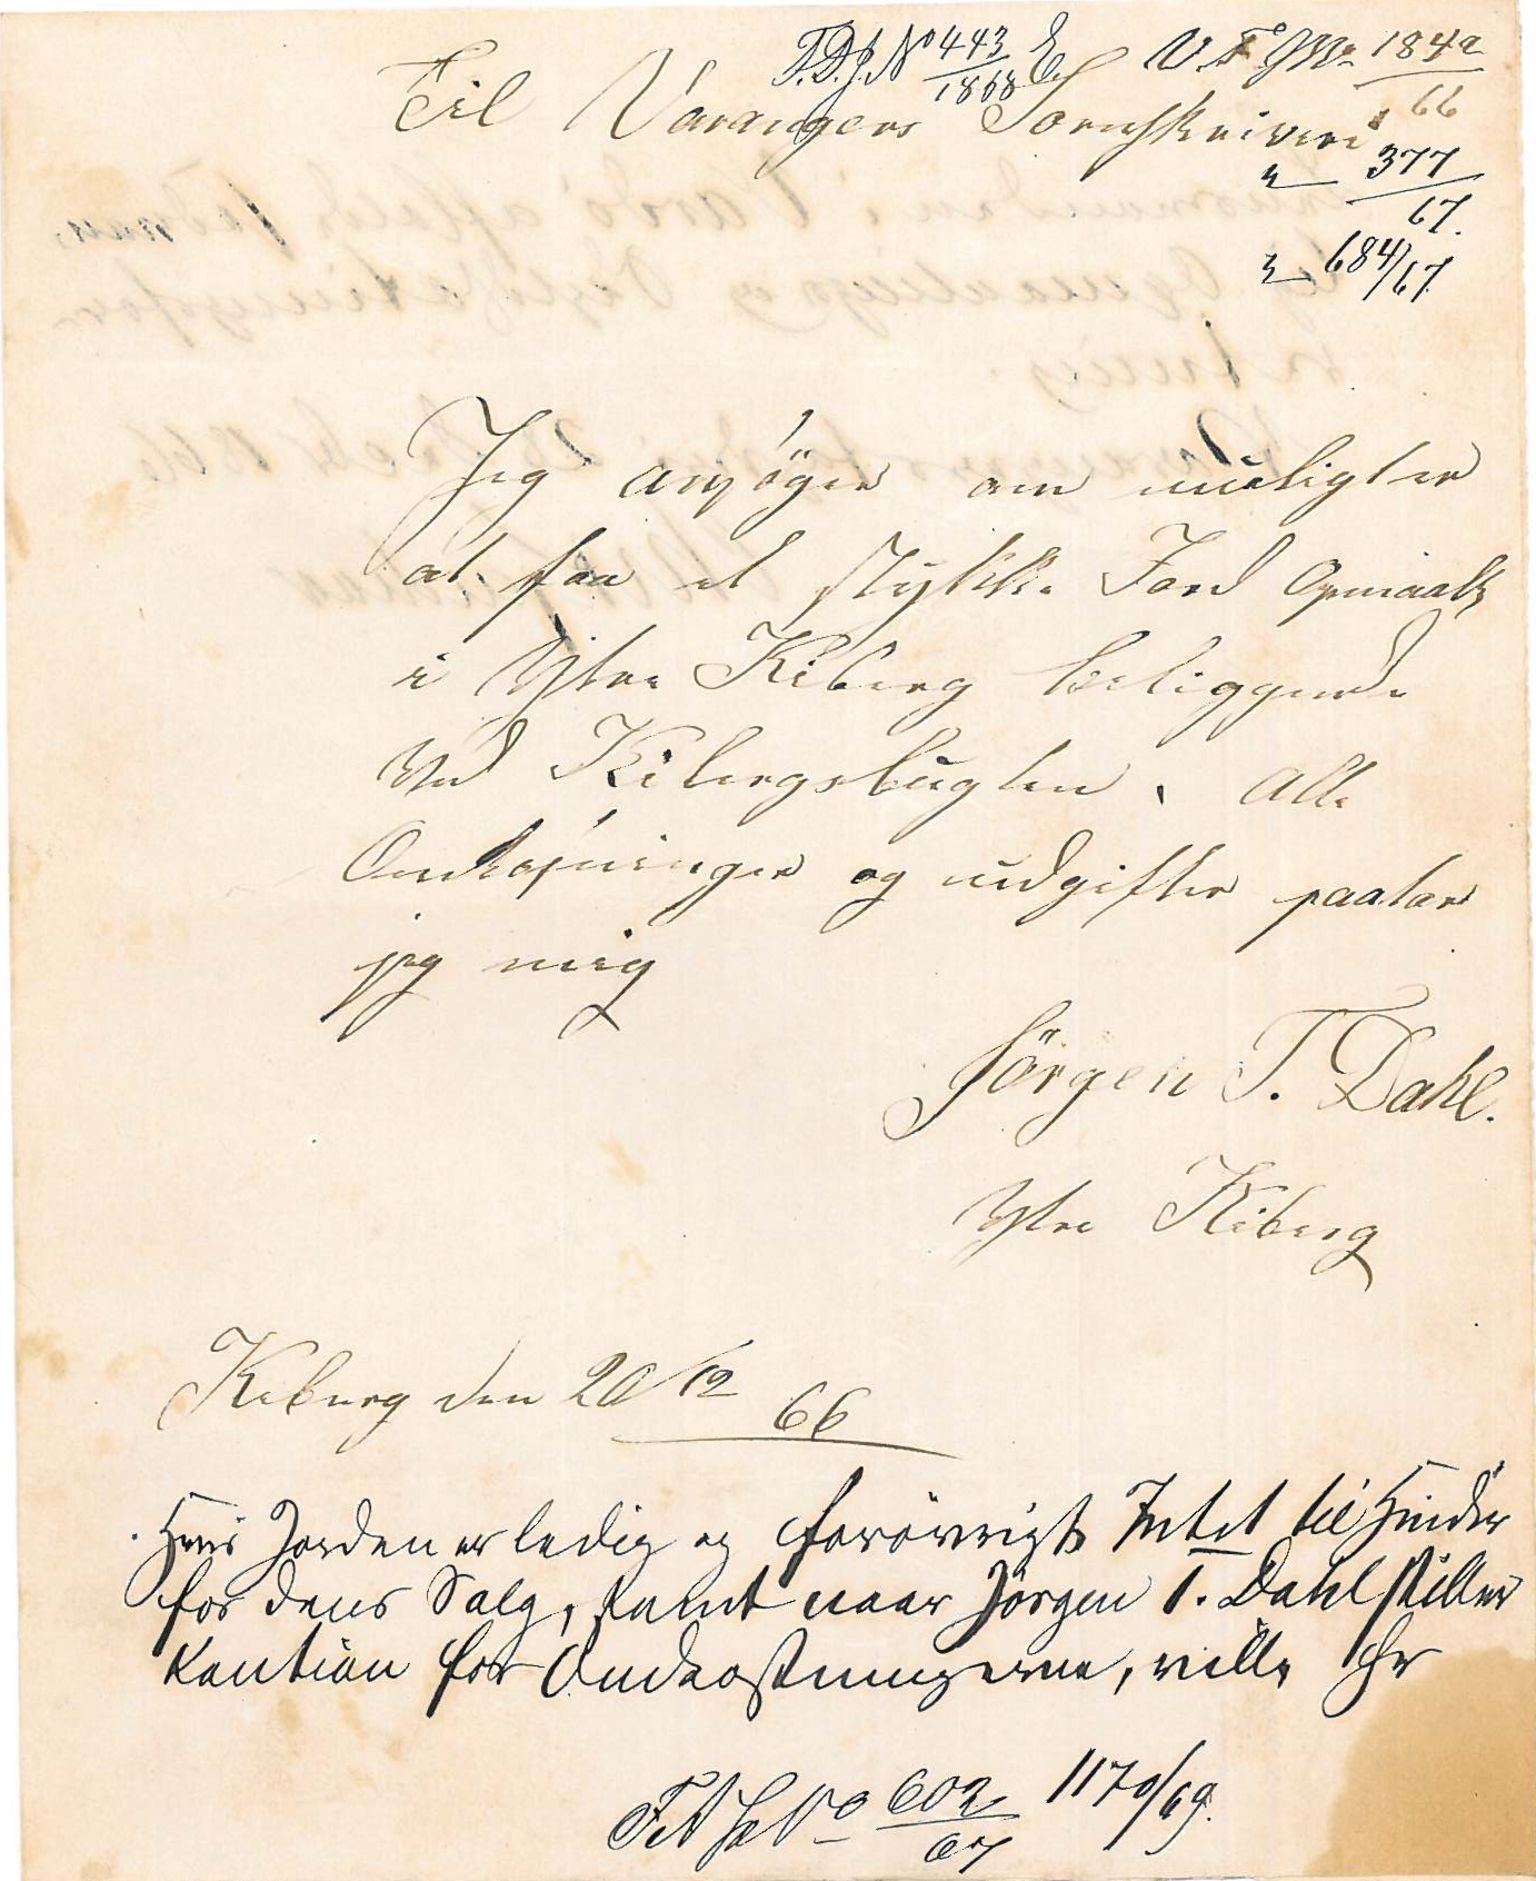 T.D.J. No 443/1868 E. V.F.J. No 1842/66
Til Varangers Sorenskriveri
" 377/67.
" 684/67
Jeg ansøger om muligter
at faa et stykke Jord Opmaalt
i Ytre Kiberg beliggende
Ved Kibergsbugten. Alle
Omkostninger og udgifter paatar
jeg mig
Jörgen T. Dahl.
Ytre Kiberg
Kiberg den 20/12 66
Hvis Jorden er ledig og forövrigt Intet til Hinder
for dens Salg, samt naar Jörgen T. Dahl stiller
Kaution for Omkostningerne, ville Hr
No 602/67 1170/69.